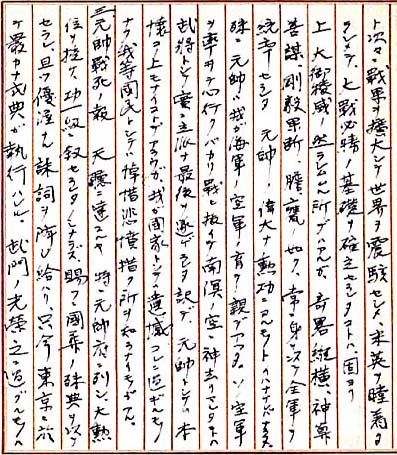 ト次々ニ戦果ヲ擴大シテ世界ヲ震駭セシメ米英ヲ瞠若タ
ラシメテ、必戦必勝ノ基礎ヲ確立セラレタコトハ固ヨリ
上大御稜威ノ然ラシムル所デハアルガ、奇略縱横、神算
善謀、剛毅果断、膽甕ノ如ク、常ニ身ヲ以テ全軍ヲ
統率セラレタ 元帥ノ偉大ナ勲功ニアルモノト
殊ニ元帥ハ我ガ海軍ノ空軍ノ育テノ親デアツタ。ソノ空軍
ヲ率ヰテ心行クバカリ戦ヒ抜イテ南溟ノ空ニ神去リマシタコトハ
武将トシテ寔ニ立派ナ最後ヲ遂ゲラレタ訳デ、元帥トシテハ本
懐コノ上モナイコトデアラウガ、我ガ國家トシテハ遺憾コレニ過ギルモノ
ナク、我等國民トシテハ悼惜悲憤措ク所ヲ知ラナイモノガアル。
三、元帥戰死ノ報 天聽ニ達スルヤ 特ニ元帥府ニ列シ大勲
位ヲ授ケ功一級ニ叙セラレタノミナラズ、賜フニ國葬ノ殊典ヲ以テ
セラレ、且ツ優渥ナル誄詞ヲ降シ給ハリ、只今東京ニ於
テ嚴カナ式典ガ執行ハレル。武門ノ光榮之ニ過グルモノハ